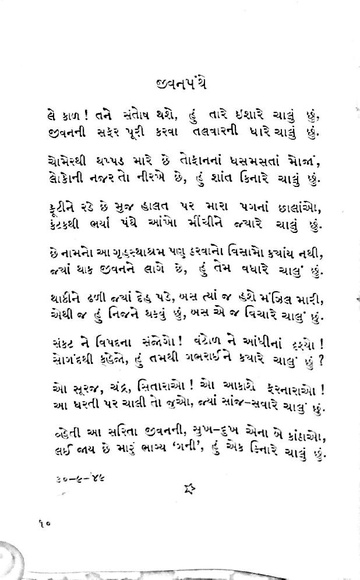 જીવનપંથે
લે કાળ! તને સંતોષ થશે, હું તારે ઇશારે ચાલું છું,
જીવનની સફર પૂરી કરવા તલવારની ધારે ચાલું છું.
ચોમેરથી થપ્પડ મારે છે તોફાનનાં ધસમસતાં મોજાં,
લોકોની નજર તો નીરખે છે, હું શાંત કિનારે ચાલું છું.
ફૂટીને રડે છે મુજ હાલત પર મારા પગનાં છાલાંઓ,
કંટકથી ભર્યા પંથે આંખો મીંચીને જ્યારે ચાલું છું.
છે નામનો આ ગૃહસ્થાશ્રમ પણ ઠરવાનો વિસામો ક્યાંય નથી,
જ્યાં થાક જીવનને લાગે છે, હું તેમ વધારે ચાલું છું.
થાકીને ઢળી જ્યાં દેહ પડે, બસ ત્યાં જ હશે મંઝિલ મારી,
એથી જ હું નિજને થકવું છું, બસ એ જ વિચારે ચાલું છું.
સંકટ ને વિપદના સંજોગો! વંટોળ ને આંધીનાં દૃશ્યો!
સોગંદથી કહેજો, હું તમથી ગભરાઈને ક્યારે ચાલું છું?
ઓ સૂરજ, ચંદ્ર, સિતારાઓ! ઓ આકાશે ફરનારાઓ!
આ ધરતી પર ચાલી તો જુઓ, જ્યાં સાંજ-સવારે ચાલું છું.
વ્હેતી આ સરિતા જીવનની, સુખ-દુખ એના બે કાંઠાઓ,
લઈ જાય છે મારું ભાગ્ય 'ગની', હું એક કિનારે ચાલું છું.
૩૦-૯-૪૯
૧૦